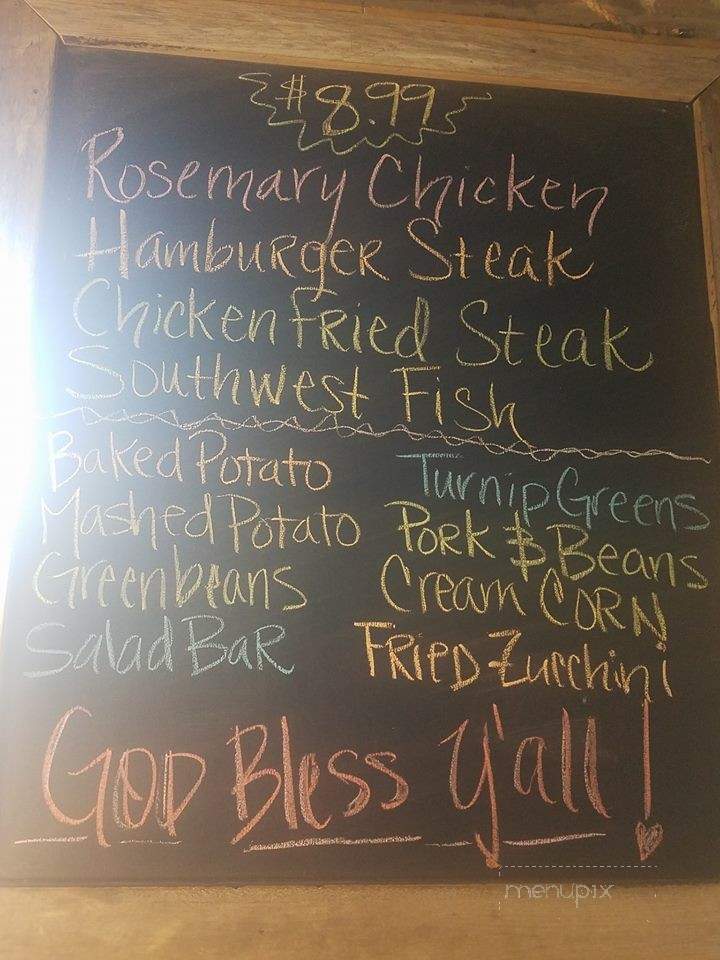 $8.99
Rosemary Chicken
Hamburger Steak
Chicken Fried Steak
Southwest Fish
Baked Potato
Mashed Potato
Greenbeans
Salad Bar
Turnip Greens
Pork & Beans
Cream Corn
Fried Zucchini
God Bless Y'all!
menupix